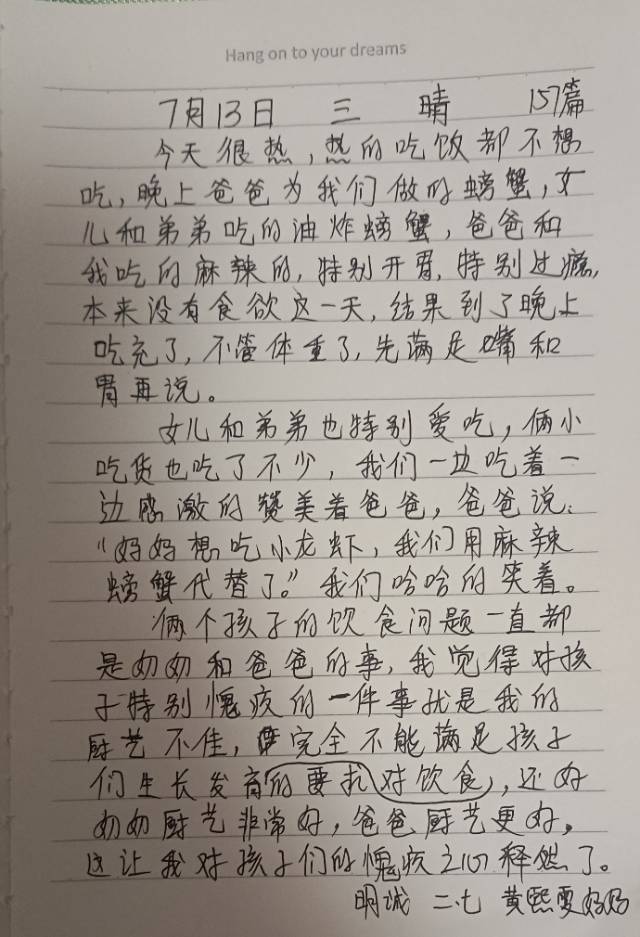 Hang on to your dreams
7月13日 三 晴 157篇
今天很热，热的吃饭都不想
吃，晚上爸爸为我们做的螃蟹，女
儿和弟弟吃的油炸螃蟹，爸爸和
我吃的麻辣的，特别开胃，特别过瘾，
本来没有食欲这一天，结果到了晚上
吃充了，不管体重了，先满足嘴和
胃再说。
女儿和弟弟也特别爱吃，俩小
吃货也吃了不少，我们一边吃着一
边感激的赞美着爸爸，爸爸说：
“妈妈想吃小龙虾，我们用麻辣
螃蟹代替了。”我们哈哈的笑着。
俩个孩子的饮食问题一直都
是奶奶和爸爸的事，我觉得对孩
子特别愧疚的一件事就是我的
厨艺不佳，完全不能满足孩子
们生长发育的要求对饮食，还好
奶奶厨艺非常好，爸爸厨艺更好，
这让我对孩子们的愧疚之心释然了。
明诚 二.七 黄熙雯妈妈